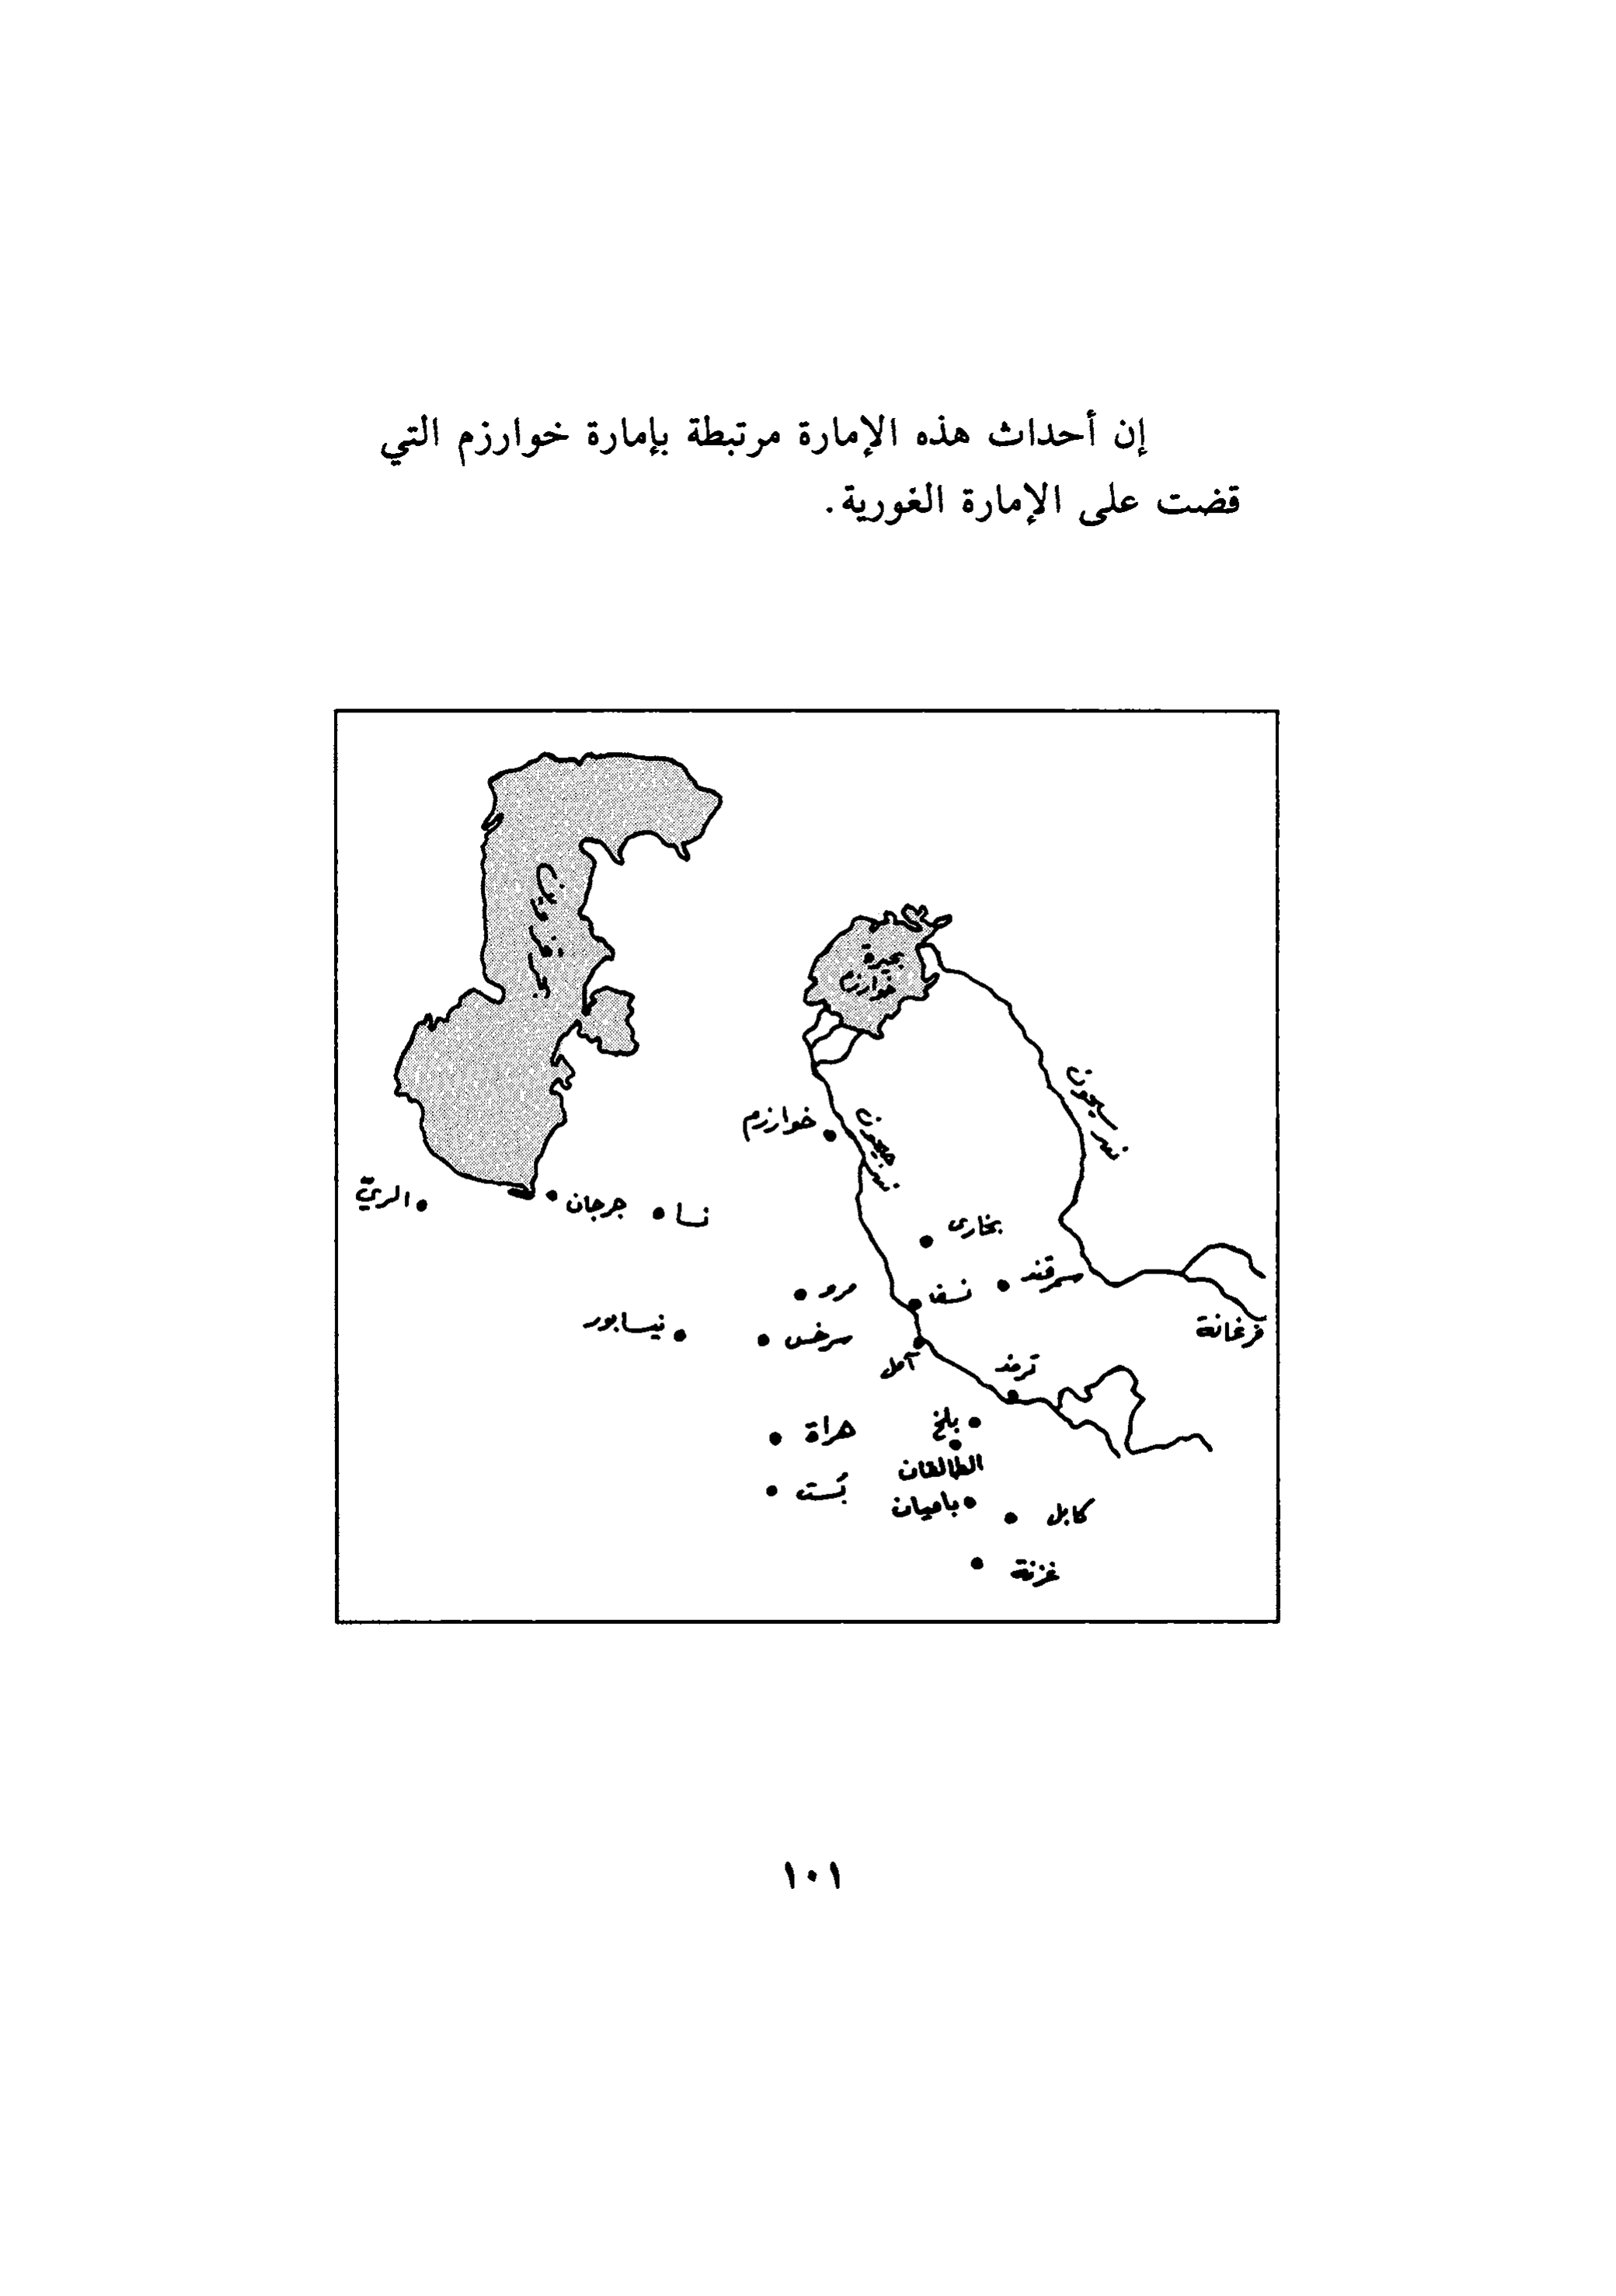 إن أحداث هذه الإمارة مرتبطة بإمارة خوارزم التي
قضت على الإمارة الغورية.
بحر الخزر
بحيرة
خوارزم
نهر سيحون
نهر جيحون
خوارزم
الريّ
جرجان
نسا
بخارى
سمرقند
نسف
مرو
نيسابور
سرخس
آمل
فرغانة
ترمذ
بلخ
هراة
الطالقان
بُست
باميان
كابل
غزنة
١٠١